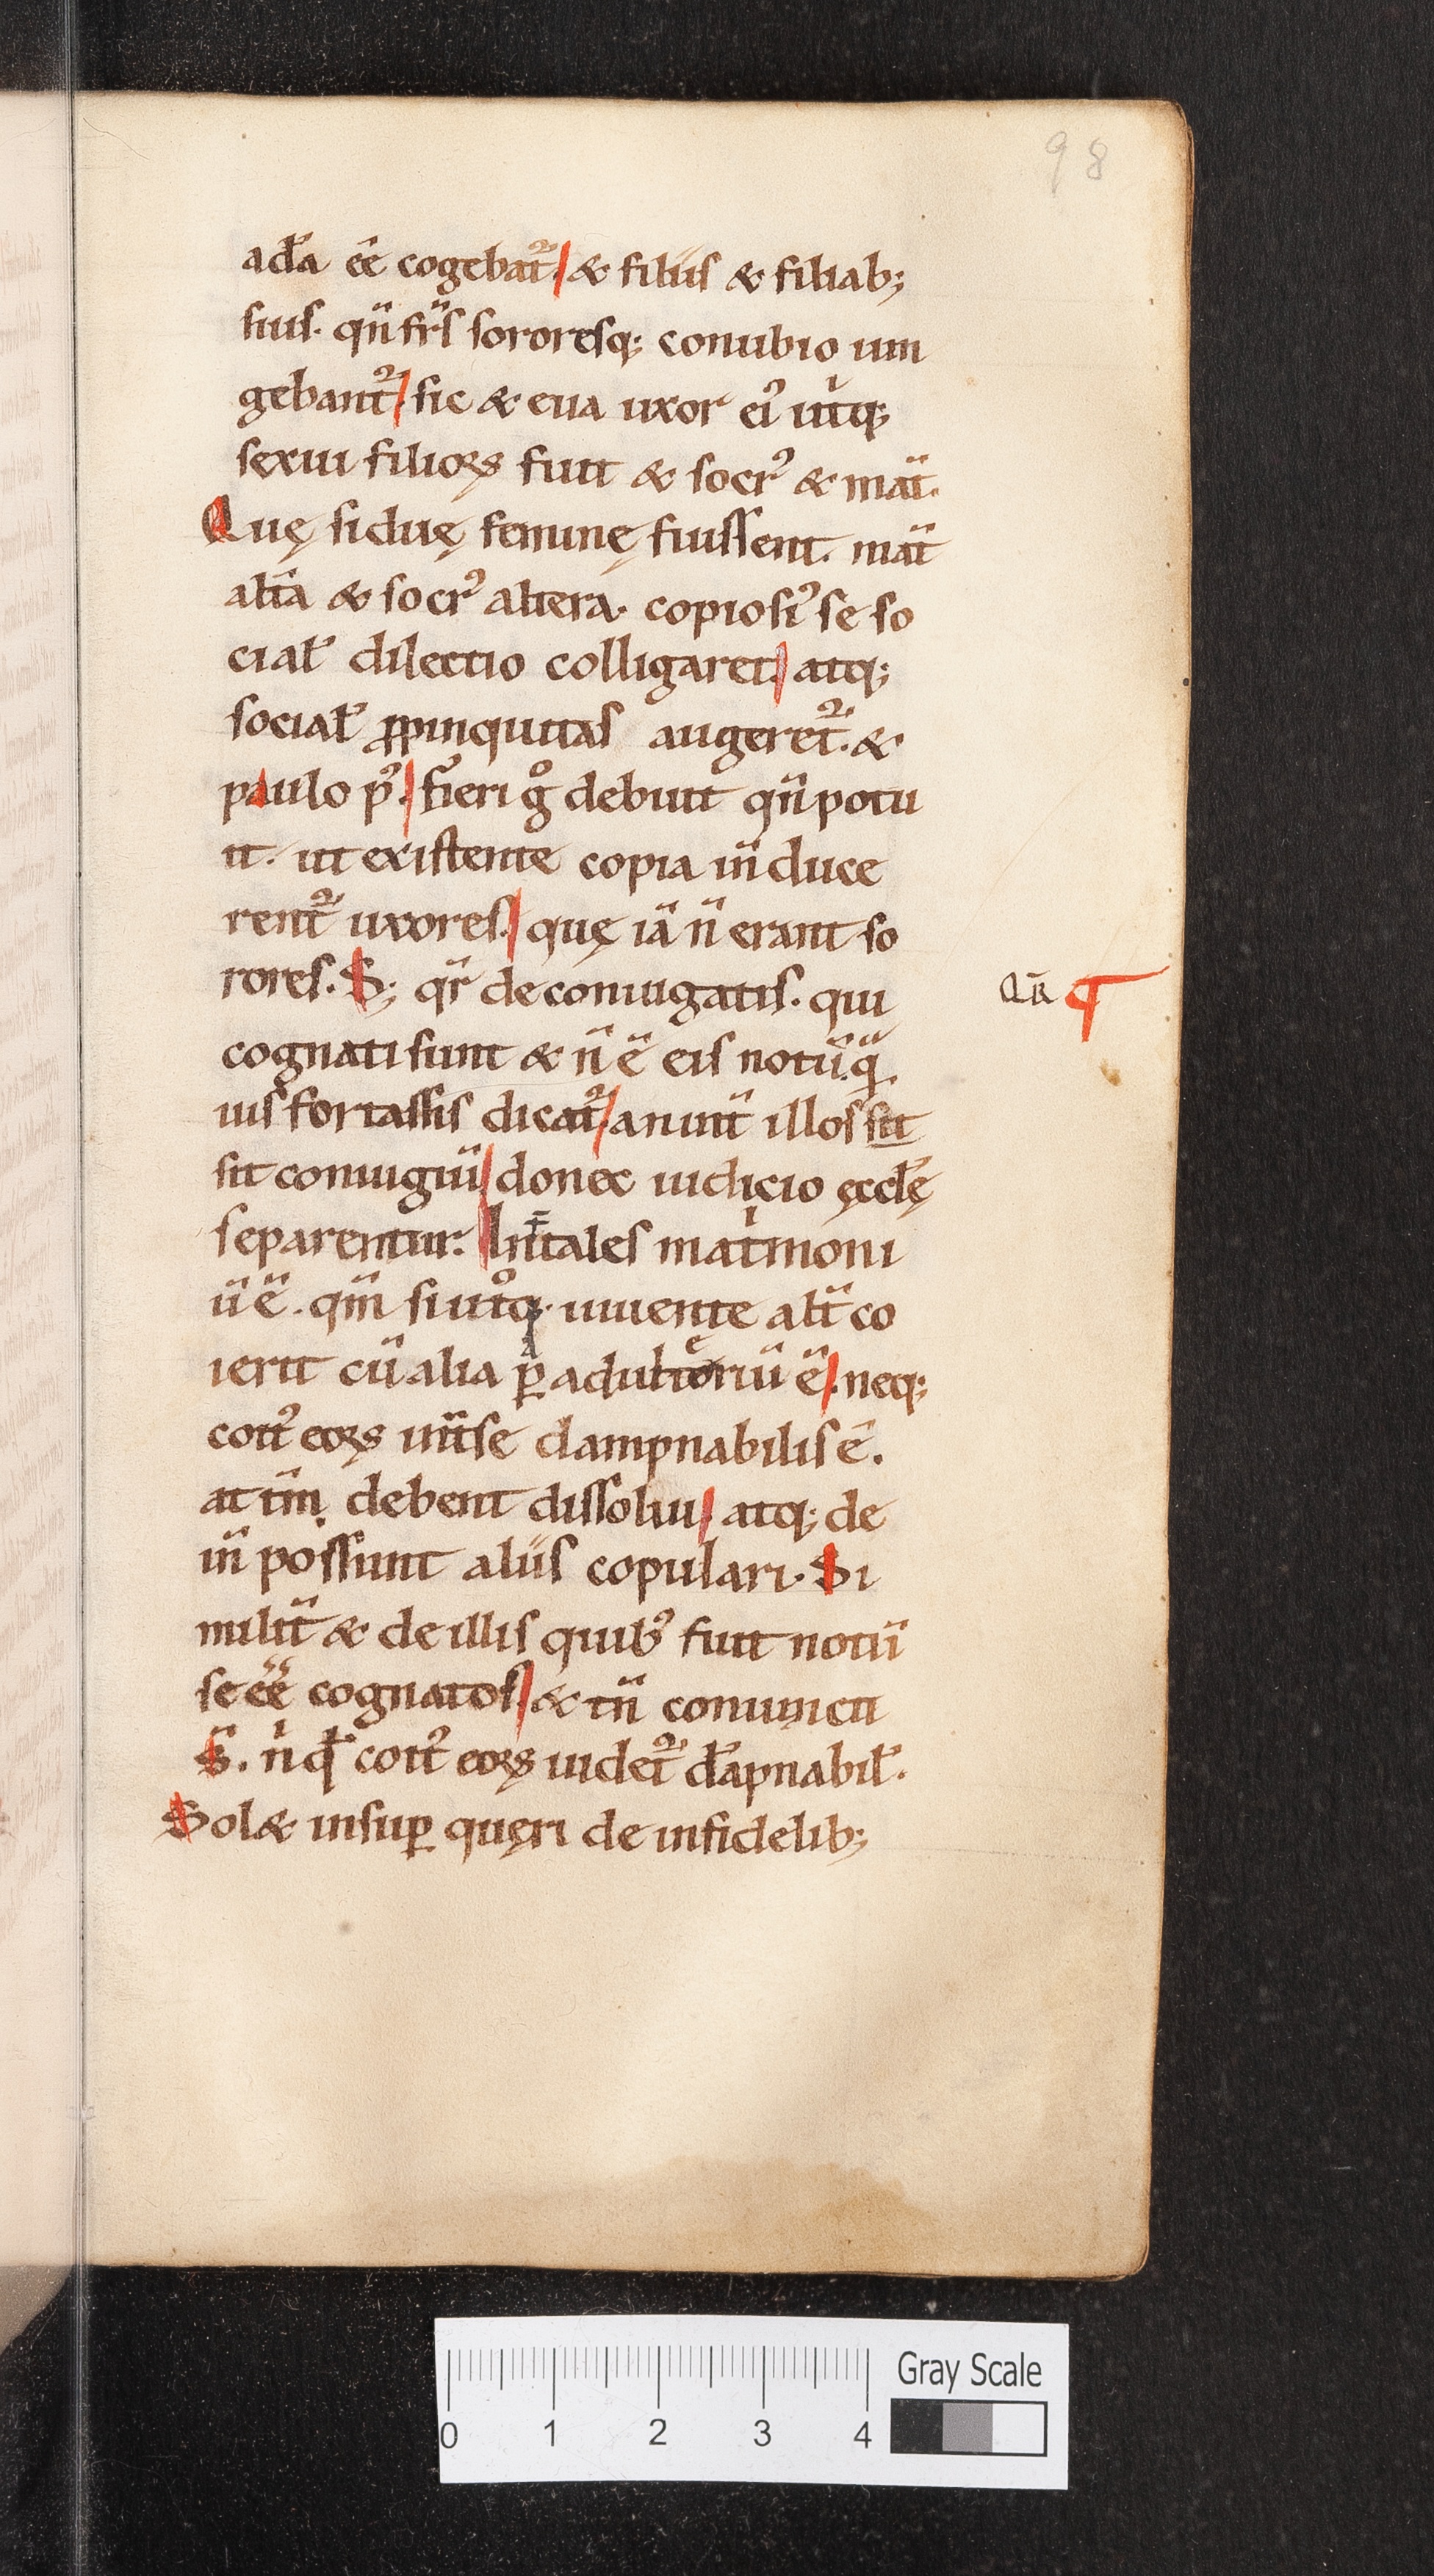 98
ad̅a ēē cogebat᷑. & filiis & filiab;
suis. qn̅ fr̅s sororesq; conubio iun
gebant᷑. sic & eua uxor ei᾿ utͥq;
sexui filioꝝ fuit & socr᾿ & mat̅.
Quę si duę feminę fuissent. mat̅
alt̅a & socr᾿ altera. copiosi᾿ se so
cial̅ dilectio colligaret. atq;
social̅ ꝓpinquitas augeret᷑. &
paulo p᾿. fieri gͦ debuit qn̅ potu
it. ut existente copia in̅ duce
rent᷑ uxores. quę ia̅ n̅ erant so
rores. S; qr̅ de coniugatis. qui
cognati sunt & n̅ ē eis notu̅. q̅
uis fortassis dicat᷑ an int̅ illos sit
sit coniugiu̅ donec iudicio ęccl̅ę
separentur. Int̅ tales matͥmoni
u̅ ē. qm̅ si utͦq; uiuente alt̅ co
ierit cu̅ alia ꝑ adulteriu̅ ē. neq;
coit᾿ eoꝝ int̅ se dampnabilis ē.
at tm̅ debent dissolui atq; de
in̅ possunt aliis copulari. Si
milit̅ & de illis quib᾿ fuit notu̅
se ēē cognatos. & tn̅ coniuncti
S̅. nͥ qd̅ coit᾿ eoꝝ uidet᷑ da̅pnabil̅.
Sol& insuꝑ quęri de infidelib;
QR̅ ¶
Gray Scale
0 1 2 3 4